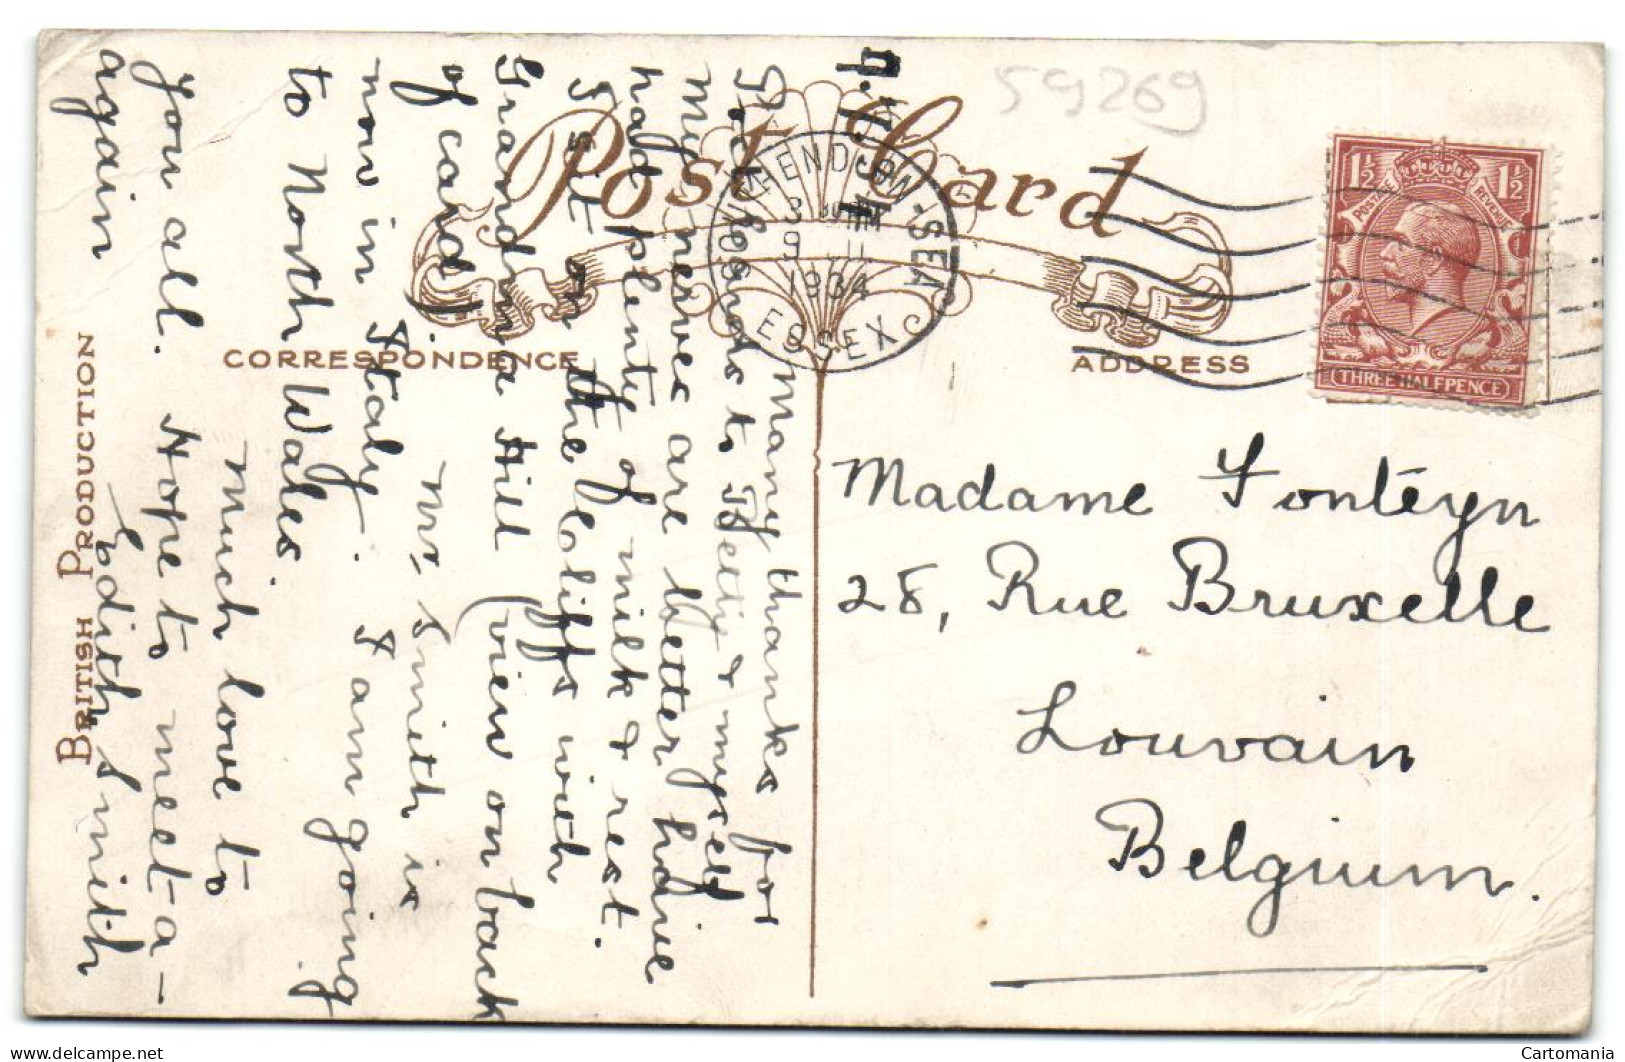 59269
Post Card
CORRESPONDENCE
ADDRESS
BRITISH PRODUCTION
SOUTHEND-ON-SEA
3 30 PM
9 JL
1934
ESSEX
1½ 1½
POSTAGE REVENUE
THREE HALFPENCE
9.7.34
Many thanks for
P.C. Regards to Betty & myself
My nerves are better have
had plenty of milk & rest.
I sit on the Cliffs with
Grandma Hill (view on back
of card). Mrs Smith is
now in Italy. I am going
to North Wales.
Much love to
you all. Hope to meet a-
again
Edith Smith
Madame Fonteyn
28, Rue Bruxelle
Louvain
Belgium.
Cartomania